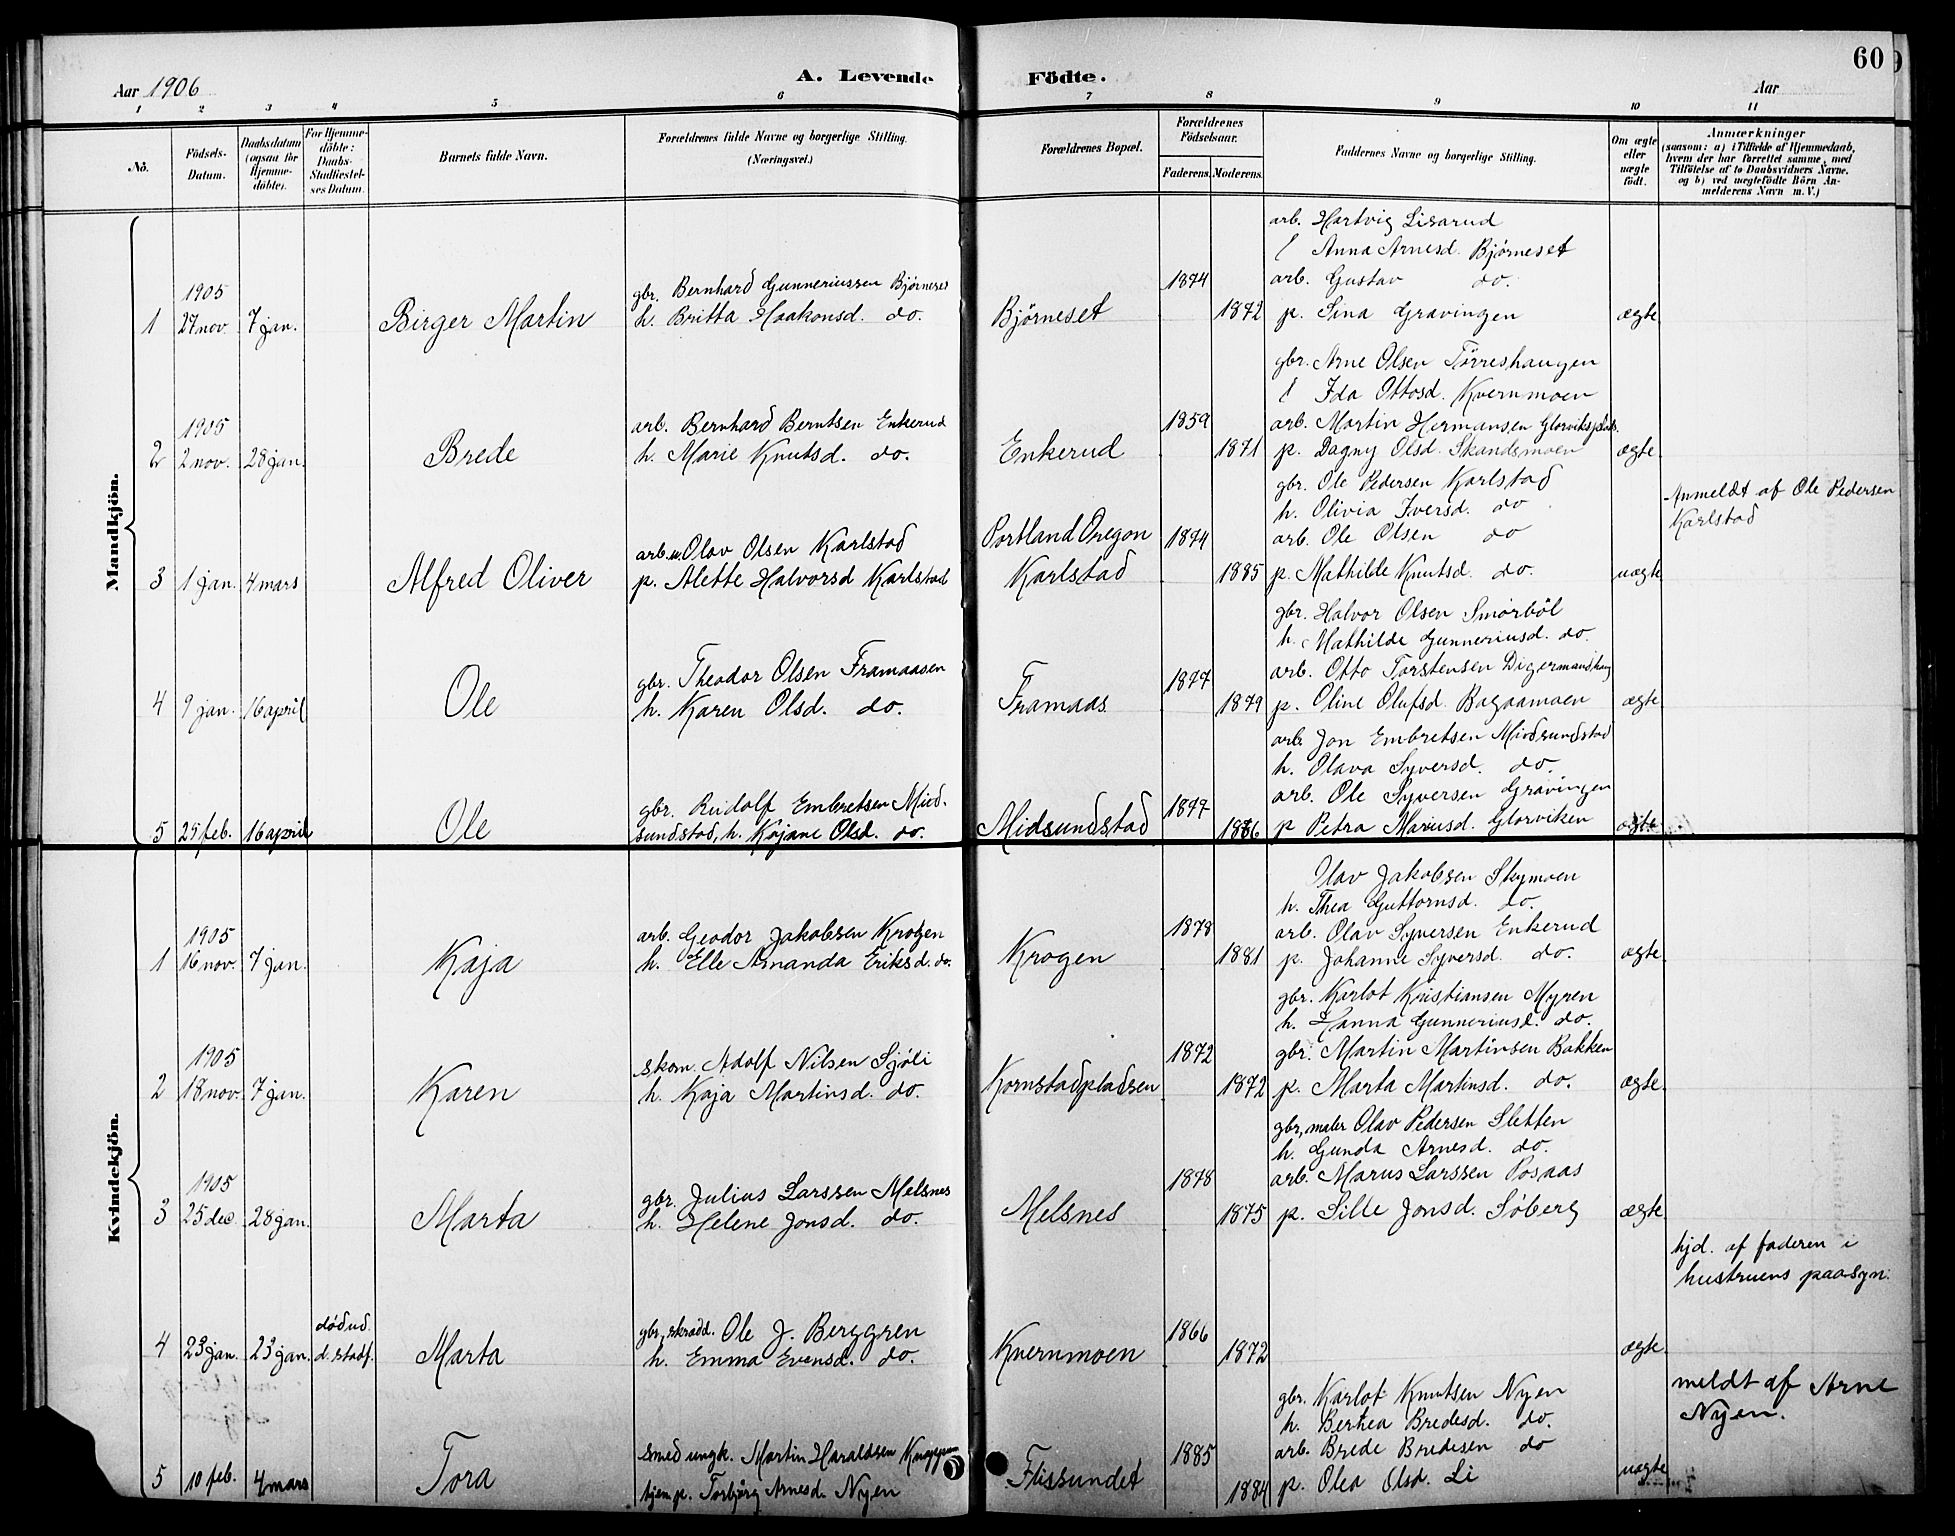 60
Aar 1906
A. Levende Födte.
Aar
1 2 3 4 5 6 7 8 9 10 11
No.
Födsels-Datum.
Daabsdatum (ogsaa for Hjemme-döbte).
For Hjemme-döbte: Daabs-Stadfæstel-ses Datum.
Barnets fulde Navn.
Forældrenes fulde Navne og borgerlige Stilling. (Næringsvei.)
Forældrenes Bopæl.
Forældrenes Födselsaar.
Faderens. Moderens.
Faddernes Navne og borgerlige Stilling.
Om ægte eller uægte födt.
Anmærkninger
(saasom: a) i Tilfælde af Hjemmedaab,
hvem der har forrettet samme, med
Tilföielse af to Daabsvidners Navne.
og b) ved uægtefödte Börn An-
melderens Navn m. V.)
Mandkjön.
arb. Hartvig Lisarud
Anna Arnesd. Bjørneset
1905
gbr. Bernhard Gunneriussen Bjørneset
1874
arb. Gustav do.
1 27 nov. 7 jan.
Birger Martin
h. Britta Haakonsd. do.
Bjørneset
1872
p. Sina Gravingen
ægte
gbr. Arne Olsen Tørreshaugen
Ida Ottosd. Kvernmoen
1905
arb. Bernhard Berntsen Enkerud
1859
arb. Martin Hermansen Glorviksplads.
2 2 nov. 28 jan.
Brede
h. Marie Knutsd. do.
Enkerud
1871
p. Dagny Olsd. Skandsmoen
ægte
gbr. Ole Pedersen Karlstad
h. Olivia Iversd. do
Anmeldt af Ole Pedersen
Karlstad
arb. Olav Olsen Karlstad
Portland Oregon
1874
arb. Ole Olsen do
3 1 jan. 4 mars
Alfred Oliver
p. Alette Halvorsd Karlstad
Karlstad
1885
p. Mathilde Knutsd. do.
uægte
gbr. Halvor Olsen Smørböl
h. Mathilde Gunneriusd. do.
gbr. Theodor Olsen Framaasen
1877
arb. Otto Torstensen Digermandshaug
4 9 jan. 16 april
Ole
h. Karen Olsd. do.
Framaas
1879
p. Oline Olufsd. Bagaamoen
ægte
arb. Jon Embretsen Midsundstad
h. Olava Syversd. do.
gbr. Rudolf Embretsen Mid-
1877
arb. Ole Syversen Gravingen
5 25 feb. 16 april
Ole
sundstad, h. Kajane Olsd. do.
Midsundstad
1876
p Petra Mariusd. Glorviken
ægte
Kvindekjön.
Olav Jakobsen Skymoen
h. Thea Guttormsd. do.
1905
arb. Geodor Jakobsen Krogen
1878
arb. Olav Syversen Enkerud
1 16 nov. 7 jan.
Kaja
h. Elle Amanda Eriksd. do.
Krogen
1881
p. Johanne Syversd. do.
ægte
gbr. Karlot Kristiansen Myren
h. Hanna Gunneriusd. do.
1905
skom. Adolf Nilsen Sjöli
1872
gbr. Martin Martinsen Bakken
2 18 nov. 7 jan.
Karen
h. Kaja Martinsd. do.
Kornstadpladsen
1872
p. Marta Martinsd. do.
ægte
gbr, maler Olav Pedersen Sletten
h. Gunda Arnesd. do.
1905
gbr. Julius Larssen Melsnes
1878
arb. Marus Larssen Posaas
3 25 dec. 28 jan.
Marta
h. Helene Jonsd. do.
Melsnes
1875
p. Sille Jonsd. Söberg
ægte
hjd. af faderen i
hustruens paasyn.
død ud.
gbr, skradd. Ole J. Berggren
1866
4 23 jan. 23 jan. d. stadf.
Marta
h. Emma Evensd. do.
Kvernmoen
1872
ægte
gbr. Karlot Knutsen Nyen
h. Berthea Bredesd. do.
meldt af Arne
Nyen.
smed ungk. Martin Haraldsen
1885
arb. Brede Bredesen do
5 10 feb. 4 mars
Tora
tjen. p. Torbjørg Arnesd. Nyen
Flissundet
1884
p. Olea Olsd. Li
uægte